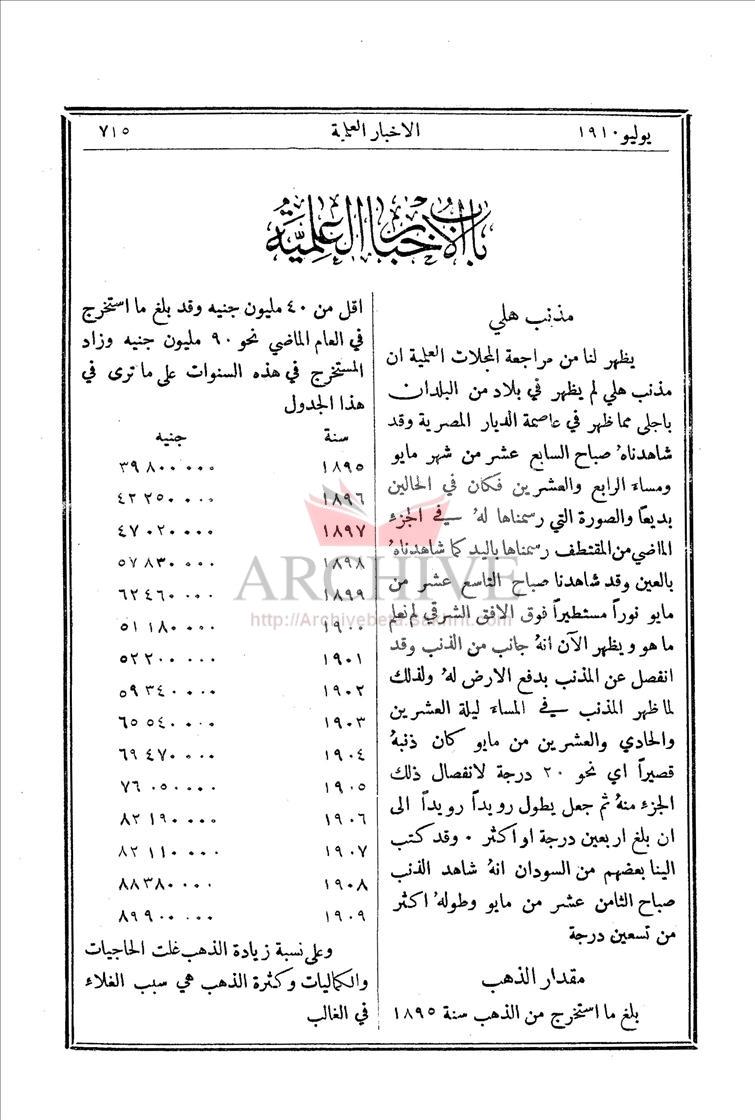 يوليو ١٩١٠
الاخبار العلمية
٧١٥
باب الاخبار العلمية
مذنب هلي
يظهر لنا من مراجعة المجلات العلمية ان
مذنب هلي لم يظهر في بلاد من البلدان
باجلى مما ظهر في عاصمة الديار المصرية وقد
شاهدناهُ صباح السابع عشر من شهر مايو
ومساء الرابع والعشرين فكان في الحالين
بديعاً والصورة التي رسمناها لهُ في الجزء
الماضي من المقتطف رسمناها باليد كما شاهدناهُ
بالعين وقد شاهدنا صباح التاسع عشر من
مايو نوراً مستطيراً فوق الافق الشرقي لم نعلم
ما هو ويظهر الآن انهُ جانب من الذنب وقد
انفصل عن المذنب بدفع الارض لهُ ولذلك
لما ظهر المذنب في المساء ليلة العشرين
والحادي والعشرين من مايو كان ذنبهُ
قصيراً اي نحو ٢٠ درجة لانفصال ذلك
الجزء منهُ ثم جعل يطول رويداً رويداً الى
ان بلغ اربعين درجة او اكثر ٠ وقد كتب
الينا بعضهم من السودان انهُ شاهد الذنب
صباح الثامن عشر من مايو وطولهُ اكثر
من تسعين درجة
مقدار الذهب
بلغ ما استخرج من الذهب سنة ١٨٩٥
اقل من ٤٠ مليون جنيه وقد بلغ ما استخرج
في العام الماضي نحو ٩٠ مليون جنيه وزاد
المستخرج في هذه السنوات على ما ترى في
هذا الجدول
سنة جنيه
١٨٩٥ ٣٩ ٨٠٠ ٠٠٠
١٨٩٦ ٤٢ ٢٥٠ ٠٠٠
١٨٩٧ ٤٧ ٠٢٠ ٠٠٠
١٨٩٨ ٥٧ ٨٣٠ ٠٠٠
١٨٩٩ ٦٢ ٤٦٠ ٠٠٠
١٩٠٠ ٥١ ١٨٠ ٠٠٠
١٩٠١ ٥٢ ٢٠٠ ٠٠٠
١٩٠٢ ٥٩ ٣٤٠ ٠٠٠
١٩٠٣ ٦٥ ٥٤٠ ٠٠٠
١٩٠٤ ٦٩ ٤٧٠ ٠٠٠
١٩٠٥ ٧٦ ٠٥٠ ٠٠٠
١٩٠٦ ٨٢ ١٩٠ ٠٠٠
١٩٠٧ ٨٢ ١١٠ ٠٠٠
١٩٠٨ ٨٨ ٣٨٠ ٠٠٠
١٩٠٩ ٨٩ ٩٠٠ ٠٠٠
وعلى نسبة زيادة الذهب غلت الحاجيات
والكماليات وكثرة الذهب هي سبب الغلاء
في الغالب
ARCHIVE